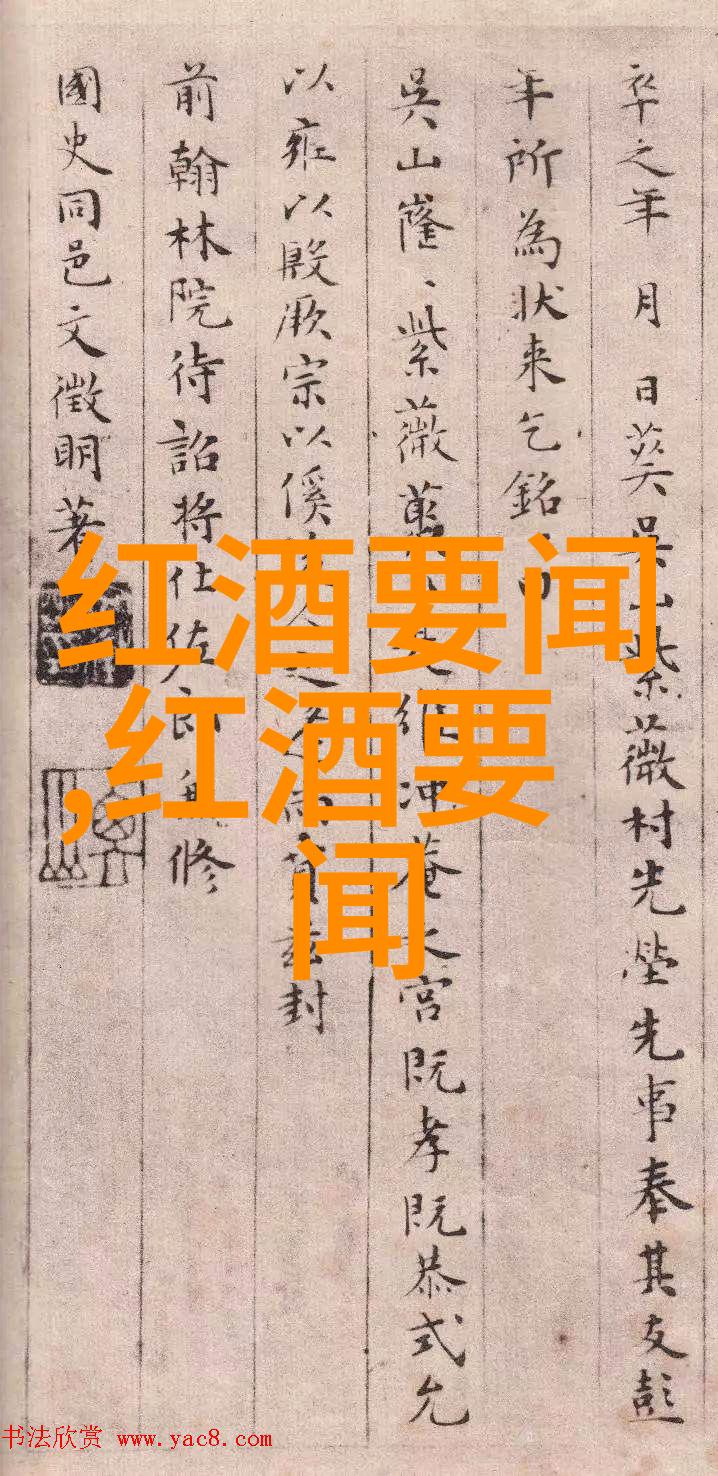 卒之年 月 日葬吳山紫薇村先塋先事奉其友彭
年所為狀来乞銘
吳山崔、紫薇
冲菴
宫既孝既恭式允
以雍以殿厥宗以傒
茲封
前翰林院待詔将仕佐郎
修
國史同邑文徵明著
红酒要闻
,红酒要
闻
书法欣赏 www.yac8.com